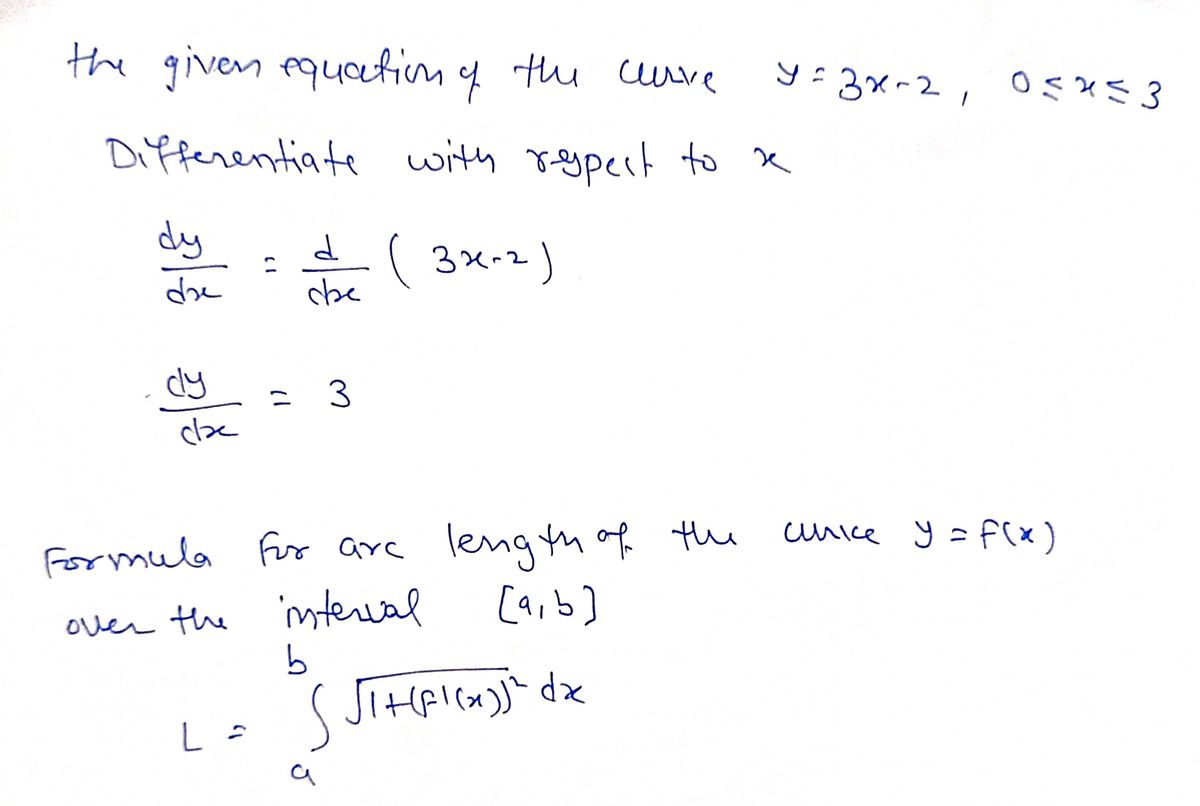 the given equation of the curve y = 3x-2, 0 ≤ x ≤ 3
Differentiate with respect to x
dy/dx = d/dx ( 3x-2)
dy/dx = 3
Formula for arc length of the curve y = f(x)
over the interval [a,b]
L = ∫_a^b √(1+(f'(x))² dx